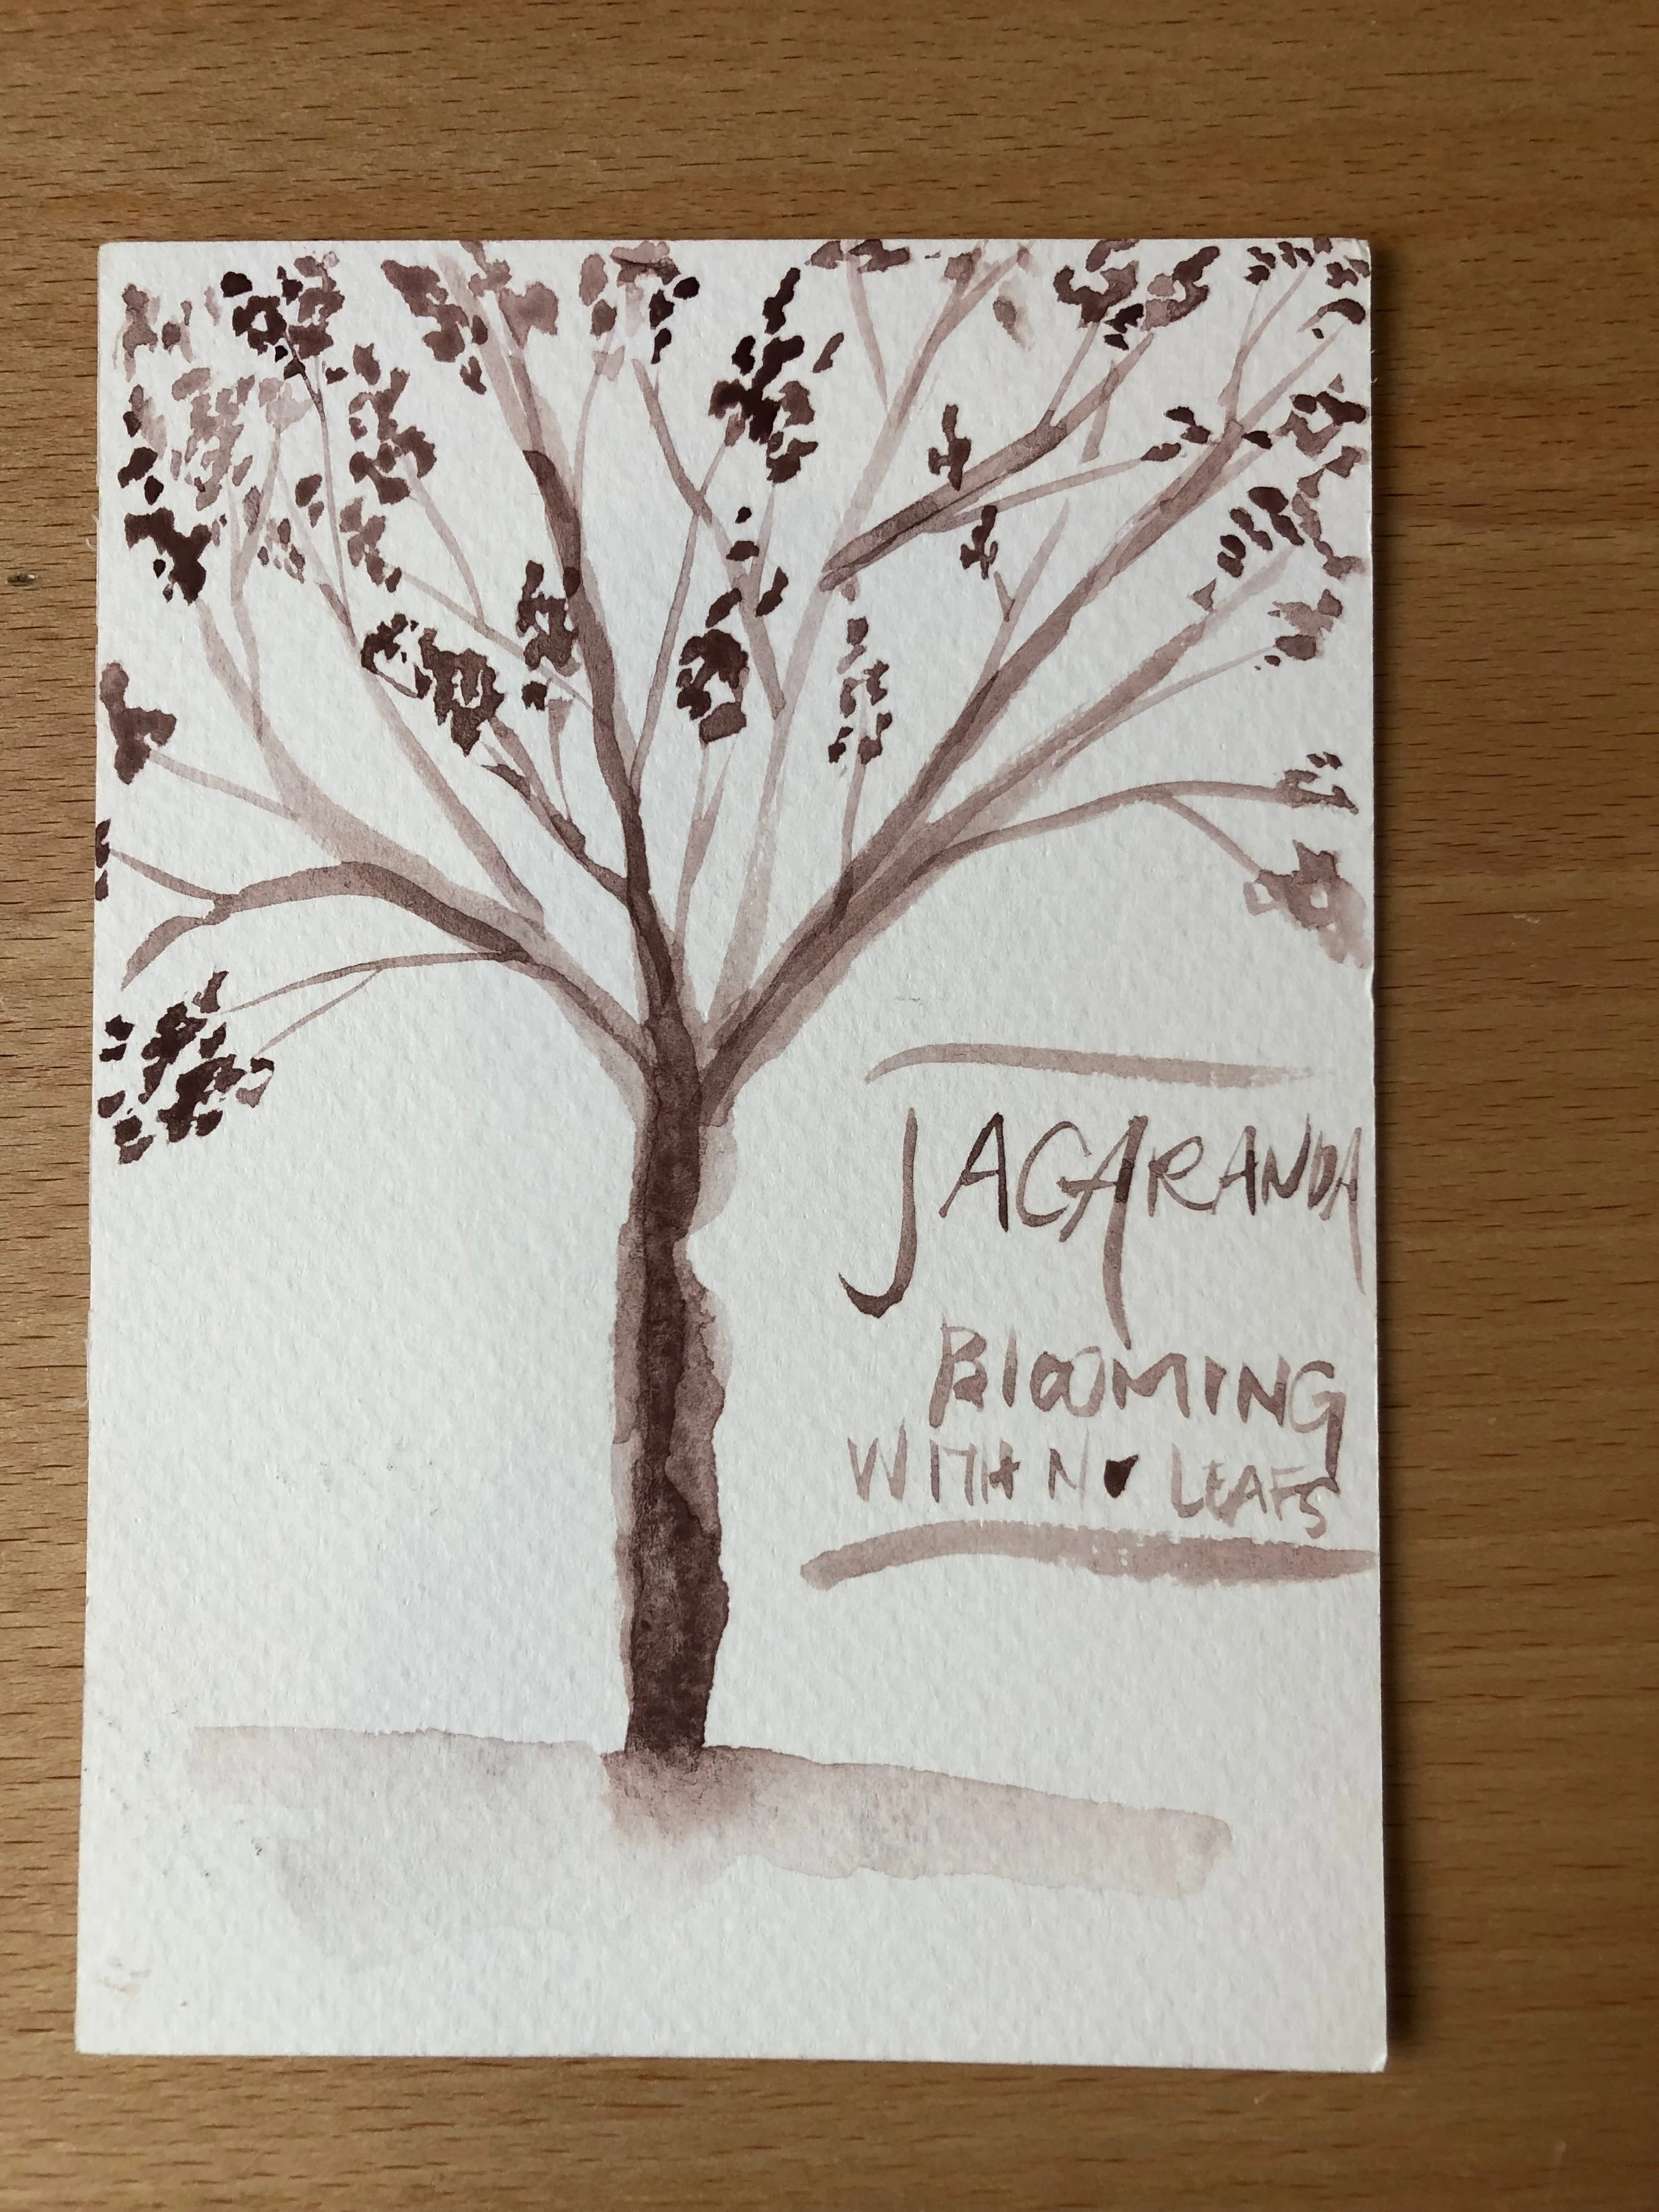 JACARANDA
BLOOMING
WITH NO LEAFS